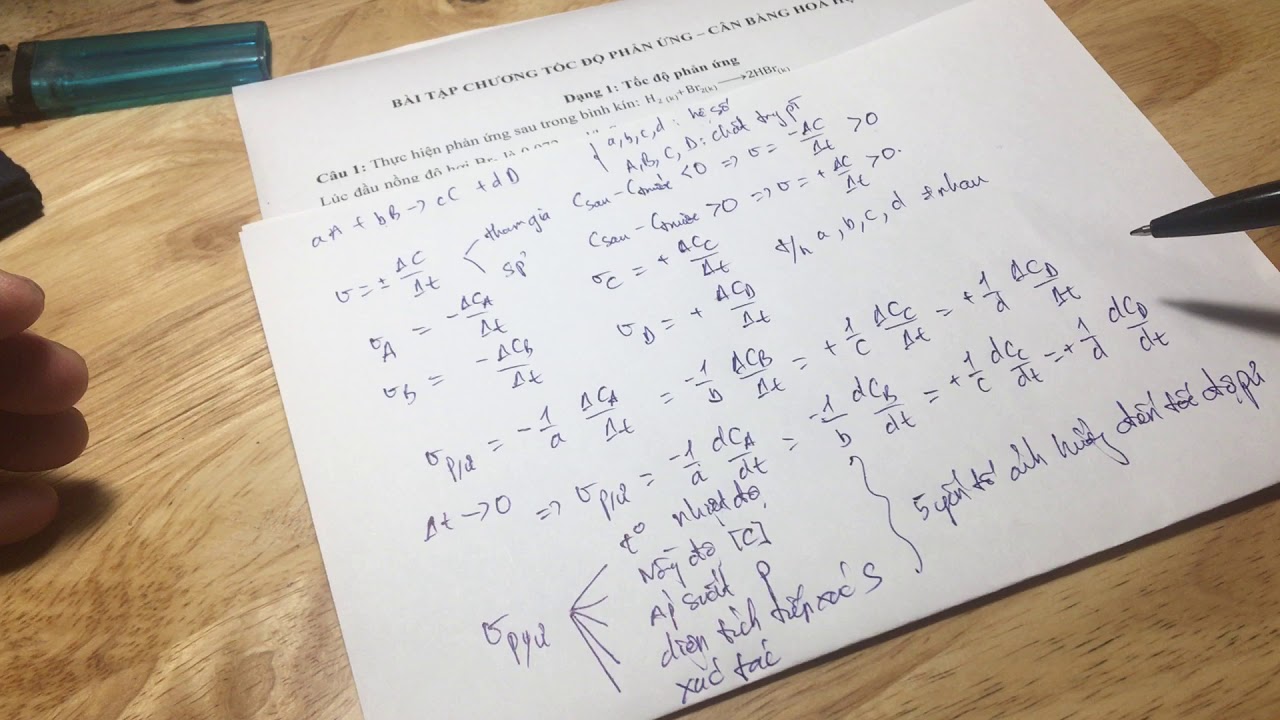 BÀI TẬP CHƯƠNG TỐC ĐỘ PHẢN ỨNG – CÂN BẰNG HOÁ
Dạng 1: Tốc độ phản ứng
Câu 1: Thực hiện phản ứng sau trong bình kín: H2 (k) + Br2(k) → 2HBr(k)
Lúc đầu nồng độ hơi Br2 là 0,072
aA + bB → cC + dD
a, b, c, d : hệ số
A, B, C, D : chất
v = ± ΔC/Δt
tham gia Csau – Ctrước < 0 => v = -ΔC/Δt > 0
sp Csau – Ctrước > 0 => v = + ΔC/Δt > 0.
vA = -ΔCA/Δt vC = + ΔCC/Δt
a, b, c, d ≠ nhau
vB = -ΔCB/Δt vD = + ΔCD/Δt
vp/ư = -1/a ΔCA/Δt = -1/b ΔCB/Δt = + 1/c ΔCC/Δt = + 1/d ΔCD/Δt
Δt → 0 => vp/ư = -1/a dCA/dt = -1/b dCB/dt = + 1/c dCC/dt = + 1/d dCD/dt
vp/ư
t° nhiệt độ
Nồng độ [C]
Áp suất P
diện tích tiếp xúc S
xúc tác
5 yếu tố ảnh hưởng đến tốc độ pư